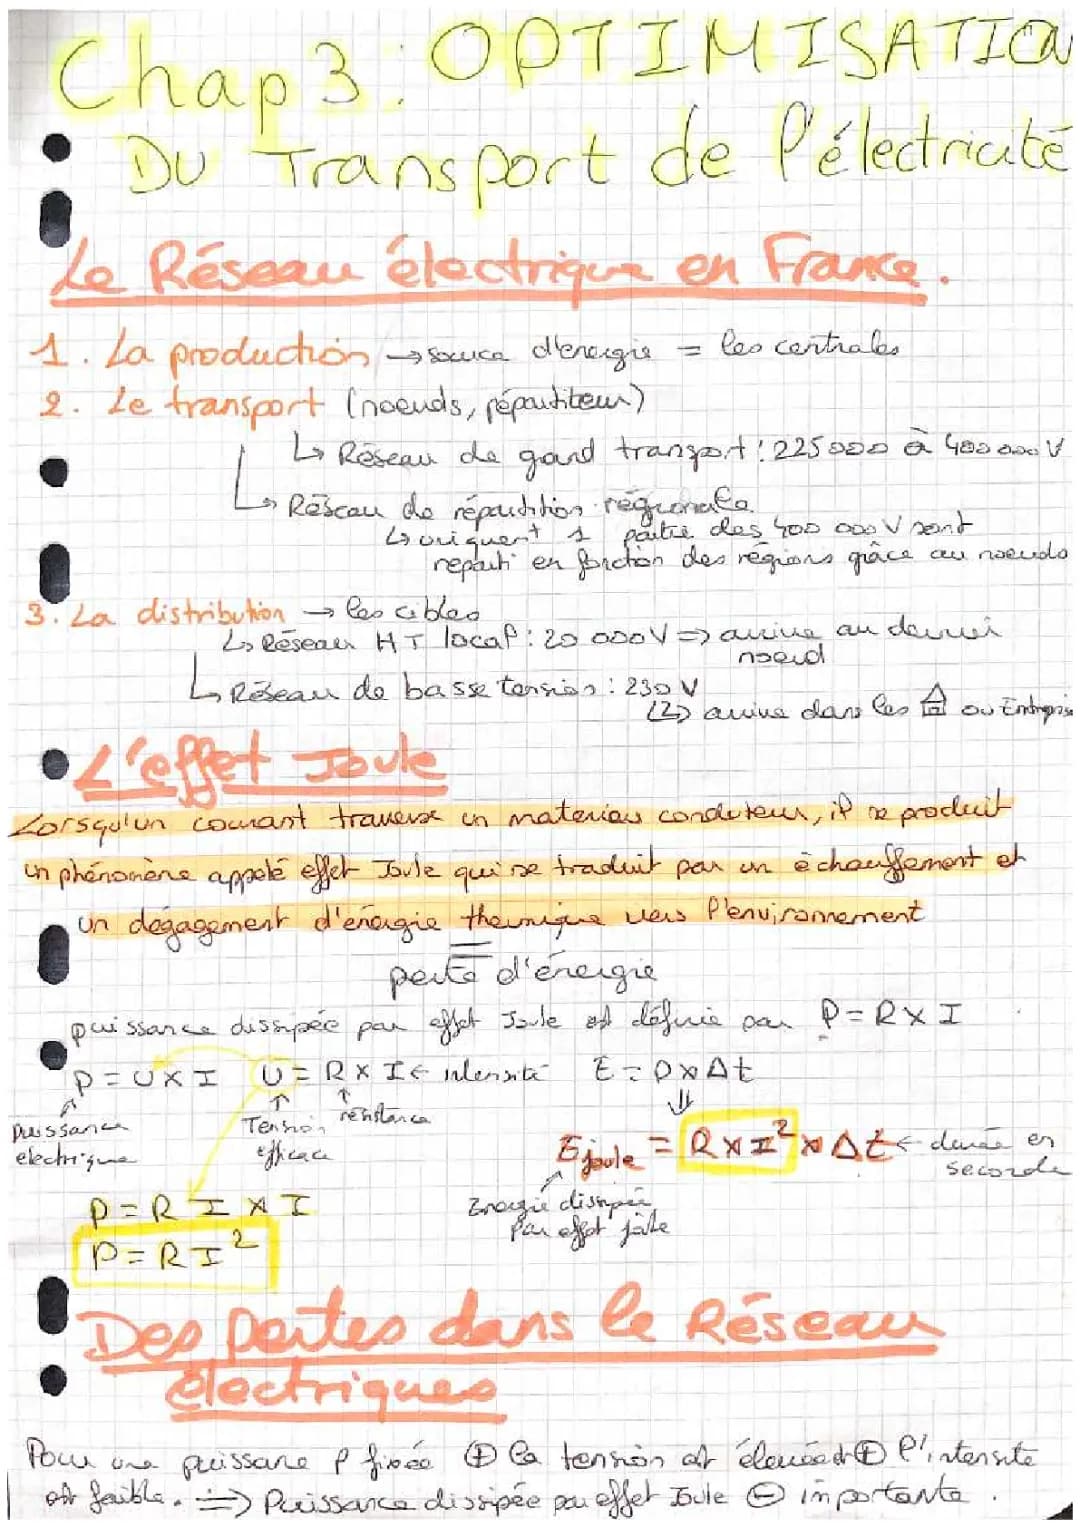 Chap 3: OPTIMISATION
DU Transport de l'électricité
Le Réseau électrique en France.
1. La production → source d'énergie = les centrales
2. Le transport (noeuds, répartiteur)
↳ Réseau de grand transport : 225 000 à 400 000 V
↳ Réseau de répartition régionale
↳ uniquent 1 partie des 400 000 V sont
reparti en fonction des régions grâce au noeuds
3. La distribution → les cibles
↳ Réseau HT local : 20 000 V ⇒ arrive au dernier
noeud
↳ Réseau de basse tension : 230 V
↳ arrive dans les ou Entreprise
L'effet Joule
Lorsqu'un courant traverse un materiau conduteur, il se produit
un phénomène appelé effet Joule qui se traduit par un échauffement et
un dégagement d'énergie thermique vers l'environnement
=
perte d'énergie
puissance dissipée par effet Joule est définie par P = R x I
P = U x I U = R x I ← intensité E = P x Δt
Puissance électrique
Tension efficace
résistance
⇓
E joule = R x I² x Δt ← durée en seconde
Energie dissipée
par effet joule
P = R I x I
P = R I²
Des Pertes dans le Réseau
électriques
Pour une puissance P fixée ⊕ la tension est élevée et ⊕ l'intensité
est faible. ⇒ Puissance dissipée par effet Joule ⊖ importante.